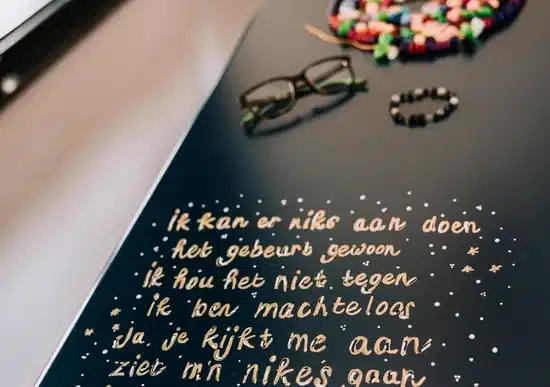 ik kan er niks aan doen
het gebeurt gewoon
ik hou het niet tegen
ik ben machteloos
Ja, je kijkt me aan
ziet m'n nikes gaan